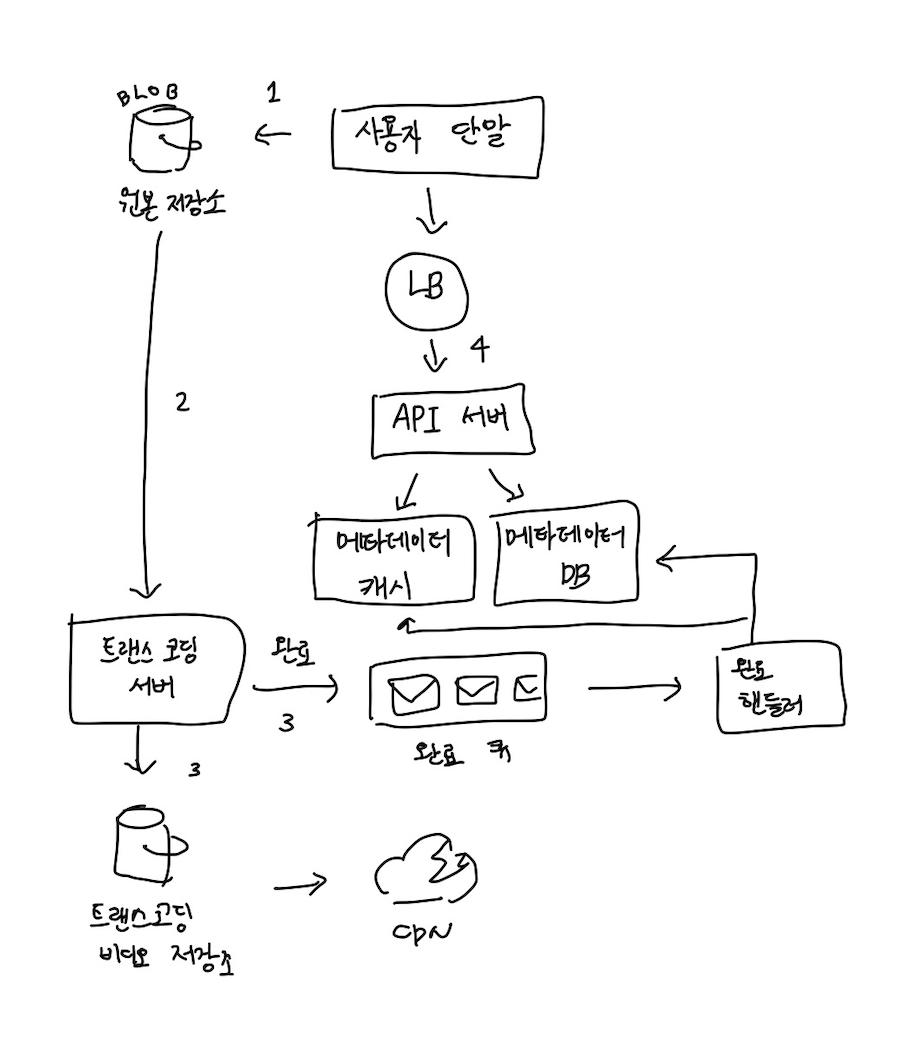 BLOB
1
사용자 단말
원본 저장소
LB
4
2
API 서버
메타데이터
캐시
메타데이터
DB
트랜스 코딩
서버
완료
3
완료
핸들러
완료 큐
3
트랜스코딩
비디오 저장소
CDN